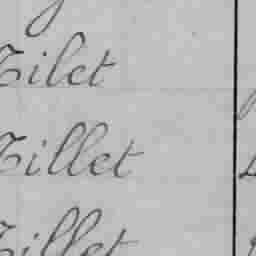 Tilet
Tillet
Tillet